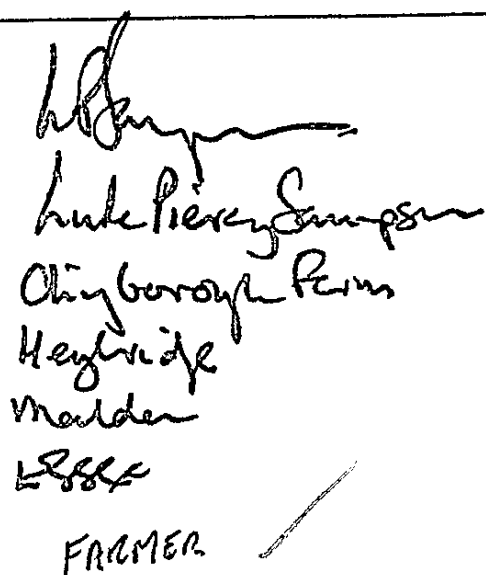 LPSampson
Luke Piercy Sampson
Chigborough Farm
Heybridge
Maldon
ESSEX
FARMER